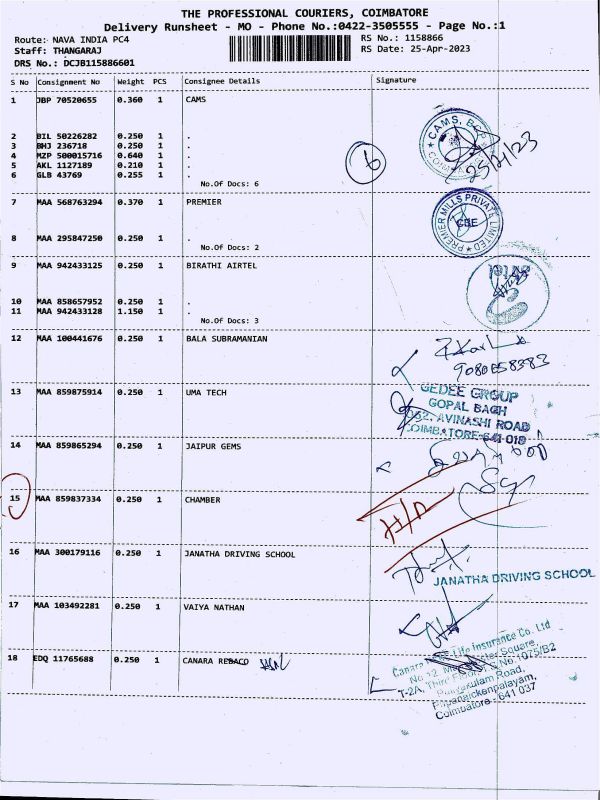 THE PROFESSIONAL COURIERS, COIMBATORE
Delivery Runsheet - MO - Phone No.:0422-3505555 - Page No.:1
Route: NAVA INDIA PC4 RS No.: 1158866
Staff: THANGARAJ RS Date: 25-Apr-2023
DRS No.: DCJB115886601
S No Consignment No Weight PCS Consignee Details Signature
1 JBP 70520655 0.360 1 CAMS
2 BIL 50226282 0.250 1 .
3 BMJ 236718 0.250 1 .
4 MZP 500015716 0.640 1 .
5 AKL 1127189 0.210 1 .
6 GLB 43769 0.255 1 .
No.Of Docs: 6
6
CAMS,
25/4/23
7 MAA 568763294 0.370 1 PREMIER
PREMIER MILLS PRIVATE LIMITED
CBE
8 MAA 295847250 0.250 1 .
No.Of Docs: 2
9 MAA 942433125 0.250 1 BIRATHI AIRTEL
10 MAA 858657952 0.250 1 .
11 MAA 942433128 1.150 1 .
No.Of Docs: 3
12 MAA 100441676 0.250 1 BALA SUBRAMANIAN
13 MAA 859875914 0.250 1 UMA TECH
GEDEE GROUP
GOPAL BAGH
AVINASHI ROAD
COIMBATORE-641 018
14 MAA 859865294 0.250 1 JAIPUR GEMS
15 MAA 859837334 0.250 1 CHAMBER
H/D
16 MAA 300179116 0.250 1 JANATHA DRIVING SCHOOL
JANATHA DRIVING SCHOOL
17 MAA 103492281 0.250 1 VAIYA NATHAN
18 EDQ 11765688 0.250 1 CANARA REBACO
Canara Life Insurance Co. Ltd
Square,
S.No.1075/B2
Road,
Pappanaickenpalayam,
Coimbatore - 641 037